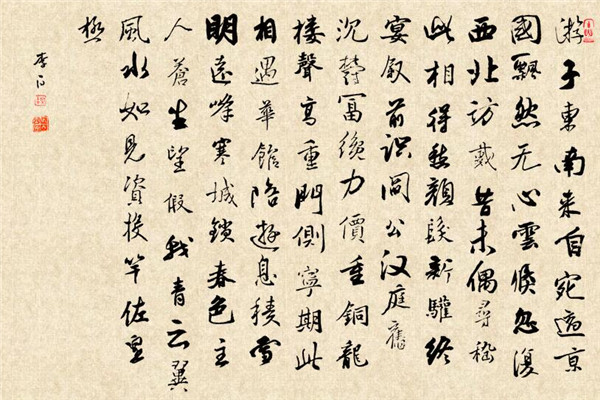 游子東南来自宛適京
國飄然无心雲倏忽復
西北訪戴昔未偶尋嵇
此相得愁顏髮新驩終
宴叙前識閻公汉庭舊
沉鬱富纔力價重銅龍
樓聲高重門側寧期此
相遇華館陪遊息積雪
明遠峰寒城鎖春色主
人蒼生望假我青云翼
風水如見資投竿佐皇
極
李白